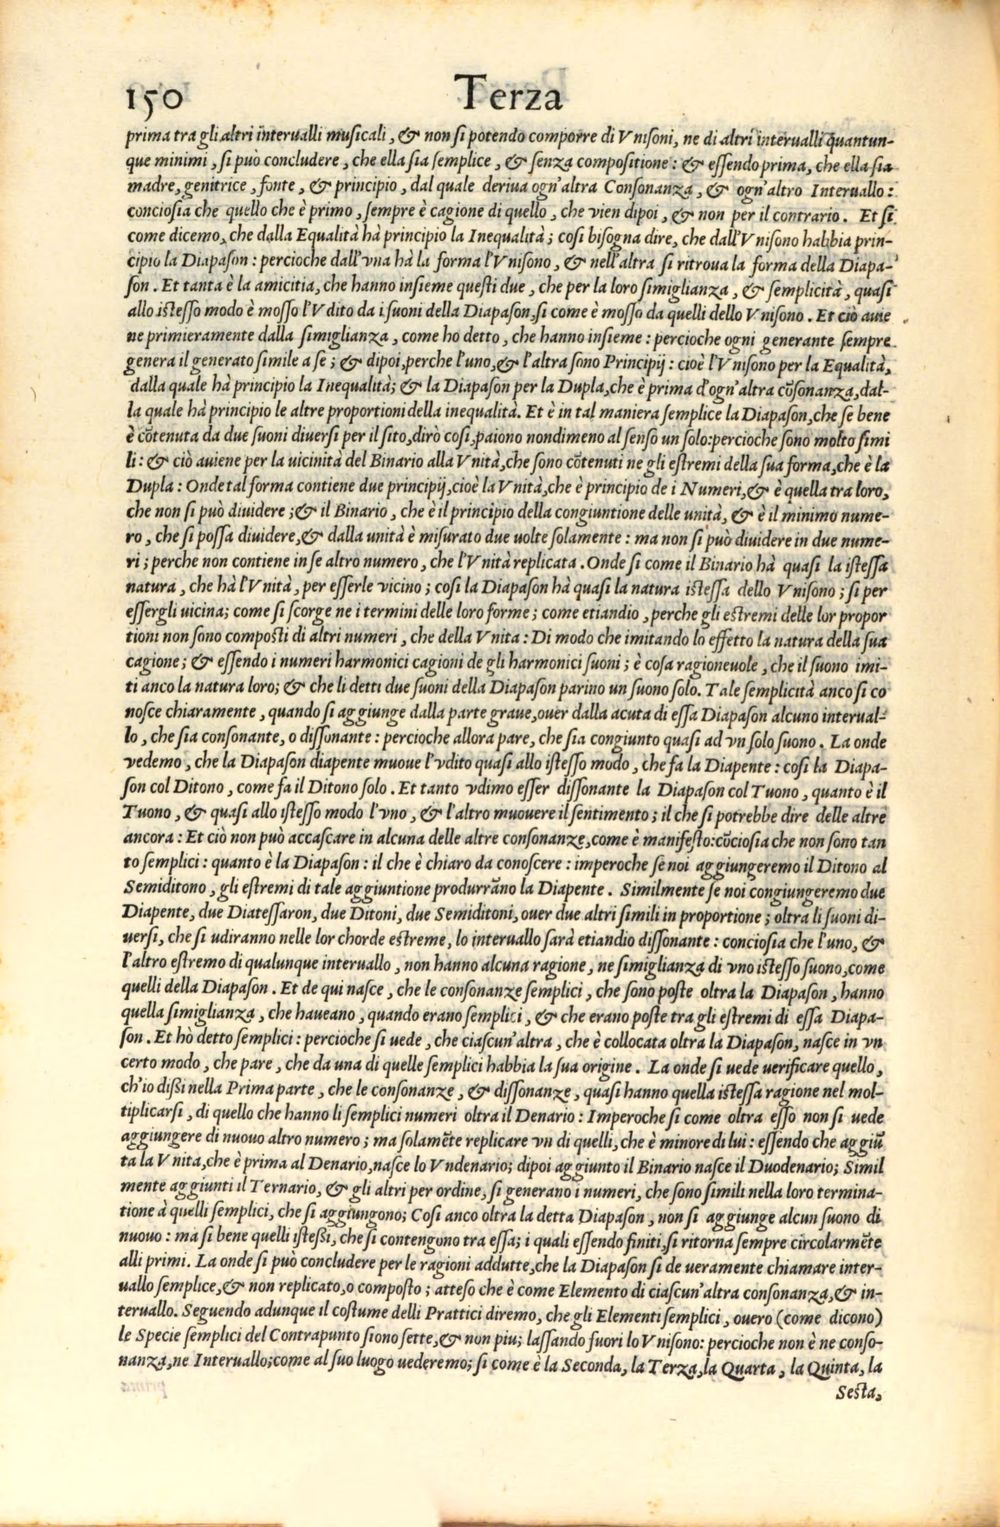 150 Terza
prima tra gli altri interualli musicali, & non si potendo comporre di Vnisoni, ne di altri interualli quantun-
que minimi, si può concludere, che ella sia semplice, & senza compositione: & essendo prima, che ella sia
madre, genitrice, fonte, & principio, dal quale deriua ogn'altra Consonanza, & ogn'altro Interuallo:
conciosia che quello che è primo, sempre è cagione di quello, che vien dipoi, & non per il contrario. Et si
come dicemo, che dalla Equalità hà principio la Inequalità; cosi bisogna dire, che dall'Vnisono habbia prin-
cipio la Diapason: percioche dall'vna hà la forma l'Vnisono, & nell'altra si ritroua la forma della Diapa-
son. Et tanta è la amicitia, che hanno insieme questi due, che per la loro simiglianza, & semplicità, quasi
allo istesso modo è mosso l'Vdito da i suoni della Diapason, si come è mosso da quelli dello Vnisono. Et ciò auie
ne primieramente dalla simiglianza, come ho detto, che hanno insieme: percioche ogni generante sempre
genera il generato simile a sè; & dipoi, perche l'uno, & l'altra sono Principij: cioè l'Vnisono per la Equalità,
dalla quale hà principio la Inequalità; & la Diapason per la Dupla, che è prima d'ogn'altra cõsonanza, dal-
la quale hà principio le altre proportioni della inequalità. Et è in tal maniera semplice la Diapason, che se bene
è cõtenuta da due suoni diuersi per il sito, dirò cosi, paiono nondimeno al senso un solo: percioche sono molto simi
li: & ciò auiene per la uicinità del Binario alla Vnità, che sono cõtenuti ne gli estremi della sua forma, che è la
Dupla: Onde tal forma contiene due principij, cioè la Vnità, che è principio de i Numeri, & è quella tra loro,
che non si può diuidere; & il Binario, che è il principio della congiuntione delle unità, & è il minimo nume-
ro, che si possa diuidere, & dalla unità è misurato due uolte solamente: ma non si può diuidere in due nume-
ri; perche non contiene in se altro numero, che l'Vnità replicata. Onde si come il Binario hà quasi la istessa
natura, che hà l'Vnità, per esserle vicino; cosi la Diapason hà quasi la natura istessa dello Vnisono; si per
essergli uicina; come si scorge ne i termini delle loro forme; come etiandio, perche gli estremi delle lor propor
tioni non sono composti di altri numeri, che della Vnita: Di modo che imitando lo effetto la natura della sua
cagione; & essendo i numeri harmonici cagioni de gli harmonici suoni; è cosa ragioneuole, che il suono imi-
ti anco la natura loro; & che li detti due suoni della Diapason parino un suono solo. Tale semplicità anco si co
nosce chiaramente, quando si aggiunge dalla parte graue, ouer dalla acuta di essa Diapason alcuno interual-
lo, che sia consonante, o dissonante: percioche allora pare, che sia congiunto quasi ad vn solo suono. La onde
vedemo, che la Diapason diapente muoue l'vdito quasi allo istesso modo, che fa la Diapente: cosi la Diapa-
son col Ditono, come fa il Ditono solo. Et tanto vdimo esser dissonante la Diapason col Tuono, quanto è il
Tuono, & quasi allo istesso modo l'vno, & l'altro muouere il sentimento; il che si potrebbe dire delle altre
ancora: Et ciò non può accascare in alcuna delle altre consonanze, come è manifesto: cõciosia che non sono tan
to semplici: quanto è la Diapason: il che è chiaro da conoscere: imperoche se noi aggiungeremo il Ditono al
Semiditono, gli estremi di tale aggiuntione produrrãno la Diapente. Similmente se noi congiungeremo due
Diapente, due Diatessaron, due Ditoni, due Semiditoni, ouer due altri simili in proportione; oltra li suoni di-
uersi, che si udiranno nelle lor chorde estreme, lo interuallo sarà etiandio dissonante: conciosia che l'uno, &
l'altro estremo di qualunque interuallo, non hanno alcuna ragione, ne simiglianza di vno istesso suono, come
quelli della Diapason. Et de qui nasce, che le consonanze semplici, che sono poste oltra la Diapason, hanno
quella simiglianza, che haueano, quando erano semplici, & che erano poste tra gli estremi di essa Diapa-
son. Et hò detto semplici: percioche si uede, che ciascun'altra, che è collocata oltra la Diapason, nasce in vn
certo modo, che pare, che da una di quelle semplici habbia la sua origine. La onde si uede uerificare quello,
ch'io dissi nella Prima parte, che le consonanze, & dissonanze, quasi hanno quella istessa ragione nel mol-
tiplicarsi, di quello che hanno li semplici numeri oltra il Denario: Imperoche si come oltra esso non si uede
aggiungere di nuouo altro numero; ma solamẽte replicare vn di quelli, che è minore di lui: essendo che aggiũ
ta la Vnita, che è prima al Denario, nasce lo Vndenario; dipoi aggiunto il Binario nasce il Duodenario; Simil
mente aggiunti il Ternario, & gli altri per ordine, si generano i numeri, che sono simili nella loro termina-
tione à quelli semplici, che si aggiungono; Cosi anco oltra la detta Diapason, non si aggiunge alcun suono di
nuouo: ma si bene quelli istessi, che si contengono tra essa; i quali essendo finiti, si ritorna sempre circolarmẽte
alli primi. La onde si può concludere per le ragioni addutte, che la Diapason si de ueramente chiamare inter-
uallo semplice, & non replicato, o composto; atteso che è come Elemento di ciascun'altra consonanza, & in-
teruallo. Seguendo adunque il costume delli Prattici diremo, che gli Elementi semplici, ouero (come dicono)
le Specie semplici del Contrapunto siono sette, & non piu; lassando fuori lo Vnisono: percioche non è ne conso-
nanza, ne Interuallo; come al suo luogo uederemo; si come è la Seconda, la Terza, la Quarta, la Quinta, la
Sesta,